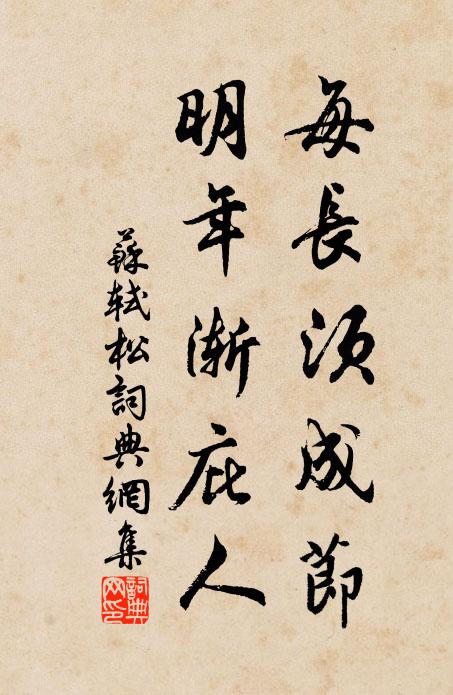 每長須成節
明年漸庇人
蘇軾松詞典網集
詞典網印